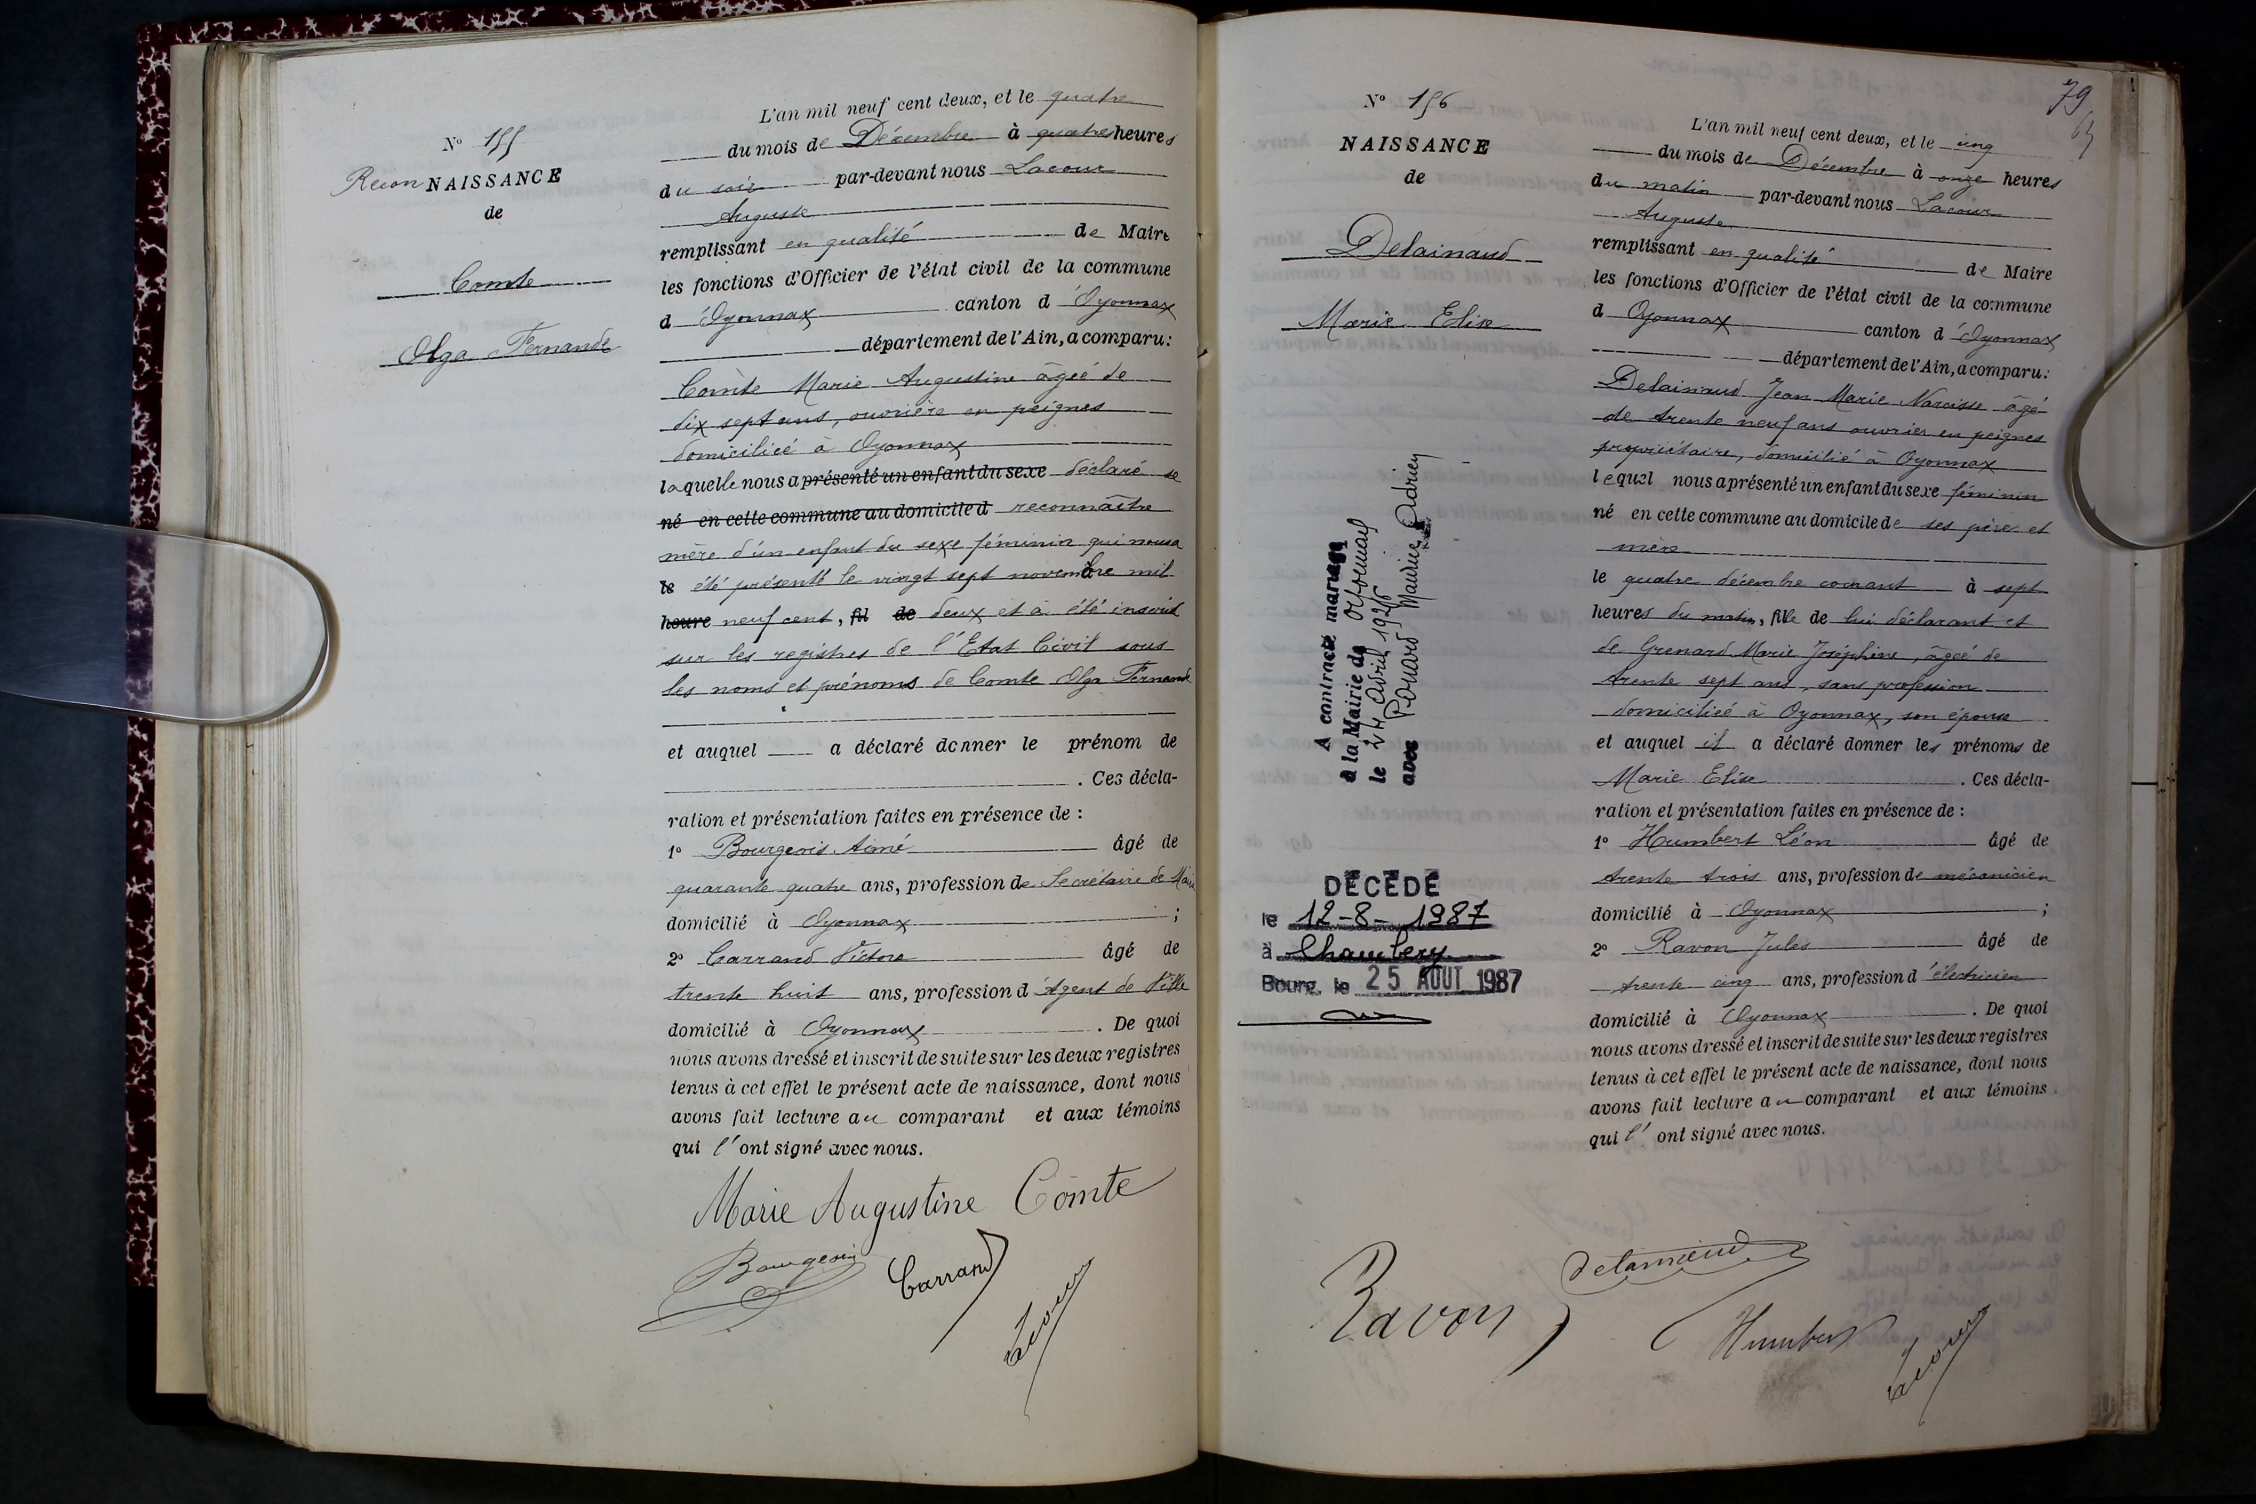 N° 155
Recon NAISSANCE
de
Comte
Olga Fernande
L'an mil neuf cent deux, et le quatre
du mois de Décembre à quatre heures
du soir par-devant nous Lacour
Auguste
remplissant en qualité de Maire
les fonctions d'Officier de l'état civil de la commune
d'Oyonnax canton d'Oyonnax
département de l'Ain, a comparu:
Comte Marie Augustine âgée de
dix sept ans, ouvrière en peignes
domiciliée à Oyonnax
laquelle nous a présenté un enfant du sexe déclaré se
né en cette commune au domicile d reconnaître
mère d'un enfant du sexe féminin qui nous a
le été présenté le vingt sept novembre mil
heure neuf cent, fil de deux et a été inscrit
sur les registres de l'Etat Civil sous
les noms et prénoms de Comte Olga Fernande
et auquel a déclaré donner le prénom de
. Ces décla-
ration et présentation faites en présence de :
1° Bourgeois Aimé âgé de
quarante quatre ans, profession de Secrétaire de Mairie
domicilié à Oyonnax ;
2° Carrand Victor âgé de
trente huit ans, profession d'Agent de Ville
domicilié à Oyonnax . De quoi
nous avons dressé et inscrit de suite sur les deux registres
tenus à cet effet le présent acte de naissance, dont nous
avons fait lecture au comparant et aux témoins
qui l'ont signé avec nous.
Marie Augustine Comte
Bourgeois Carrand
Lacour
79
N° 156
NAISSANCE
de
Delainaud
Marie Elise
A contracté mariage
à la Mairie de Oyonnax
le 24 Avril 1926
avec Ponard Maurice Adrien
DÉCÉDÉ
le 12-8-1987
à Chambery
Bourg, le 25 AOUT 1987
L'an mil neuf cent deux, et le cinq
du mois de Décembre à onze heures
du matin par-devant nous Lacour
Auguste
remplissant en qualité de Maire
les fonctions d'Officier de l'état civil de la commune
d Oyonnax canton d'Oyonnax
département de l'Ain, a comparu:
Delainaud Jean Marie Narcisse âgé
de trente neuf ans ouvrier en peignes
propriétaire, domicilié à Oyonnax
lequel nous a présenté un enfant du sexe féminin
né en cette commune au domicile de ses père et
mère
le quatre décembre courant à sept
heures du matin, fille de lui déclarant et
de Grenard Marie Joséphine, âgée de
trente sept ans, sans profession
domiciliée à Oyonnax, son épouse
et auquel il a déclaré donner les prénoms de
Marie Elise . Ces décla-
ration et présentation faites en présence de :
1° Humbert Léon âgé de
trente trois ans, profession de mécanicien
domicilié à Oyonnax ;
2° Ravon Jules âgé de
trente cinq ans, profession d'électricien
domicilié à Oyonnax . De quoi
nous avons dressé et inscrit de suite sur les deux registres
tenus à cet effet le présent acte de naissance, dont nous
avons fait lecture au comparant et aux témoins
qui l'ont signé avec nous.
Delainaud
Ravon Humbert
Lacour